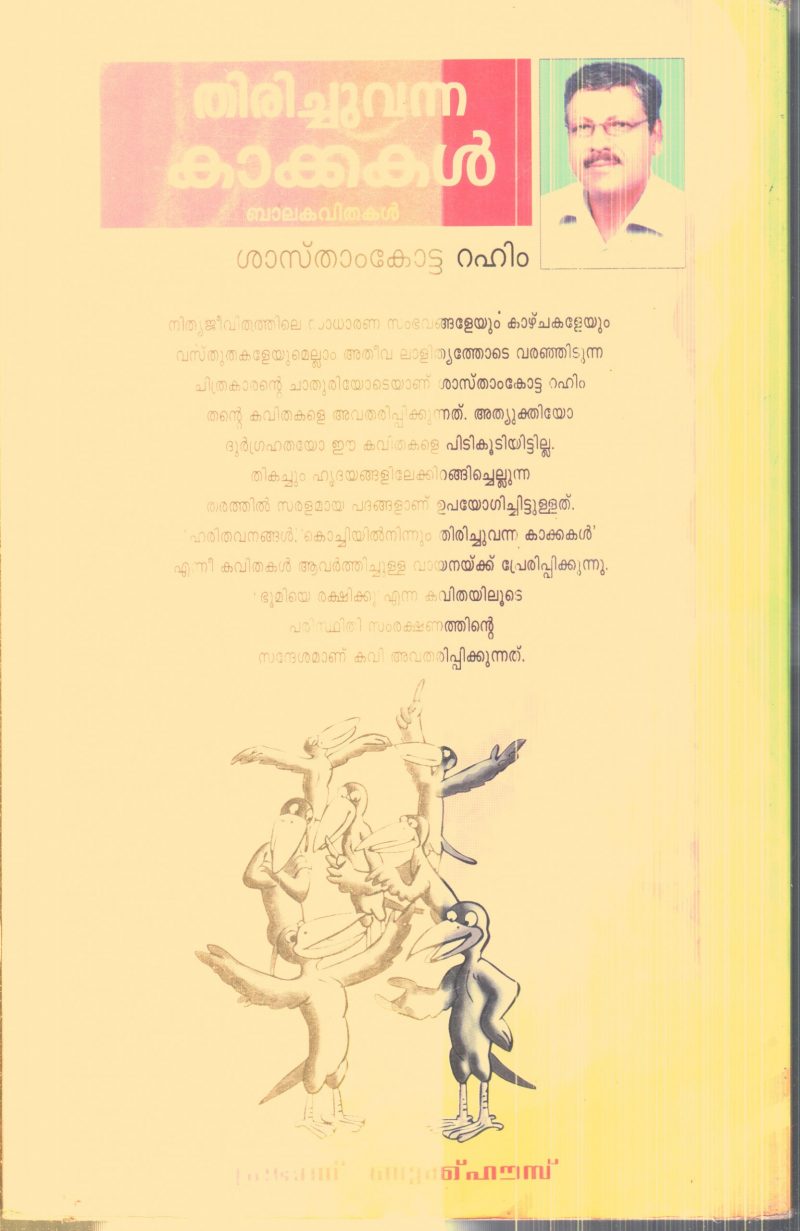 തിരിച്ചുവന്ന
കാക്കകൾ
ബാലകവിതകൾ
ശാസ്താംകോട്ട റഹിം
നിത്യജീവിതത്തിലെ സാധാരണ സംഭവങ്ങളേയും കാഴ്ചകളേയും
വസ്തുതകളേയുമെല്ലാം അതീവ ലാളിത്യത്തോടെ വരഞ്ഞിടുന്ന
ചിത്രകാരന്റെ ചാതുരിയോടെയാണ് ശാസ്താംകോട്ട റഹിം
തന്റെ കവിതകളെ അവതരിപ്പിക്കുന്നത്. അത്യുക്തിയോ
ദുർഗ്രഹതയോ ഈ കവിതകളെ പിടികൂടിയിട്ടില്ല.
തികച്ചും ഹൃദയങ്ങളിലേക്കിറങ്ങിച്ചെല്ലുന്ന
തരത്തിൽ സരളമായ പദങ്ങളാണ് ഉപയോഗിച്ചിട്ടുള്ളത്.
'ഹരിതവനങ്ങൾ', 'കൊച്ചിയിൽനിന്നും തിരിച്ചുവന്ന കാക്കകൾ'
എന്നീ കവിതകൾ ആവർത്തിച്ചുള്ള വായനയ്ക്ക് പ്രേരിപ്പിക്കുന്നു.
'ഭൂമിയെ രക്ഷിക്കൂ' എന്ന കവിതയിലൂടെ
പരിസ്ഥിതി സംരക്ഷണത്തിന്റെ
സന്ദേശമാണ് കവി അവതരിപ്പിക്കുന്നത്.